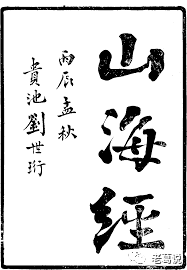 山海經
丙辰孟秋
貴池劉世珩
老葛说